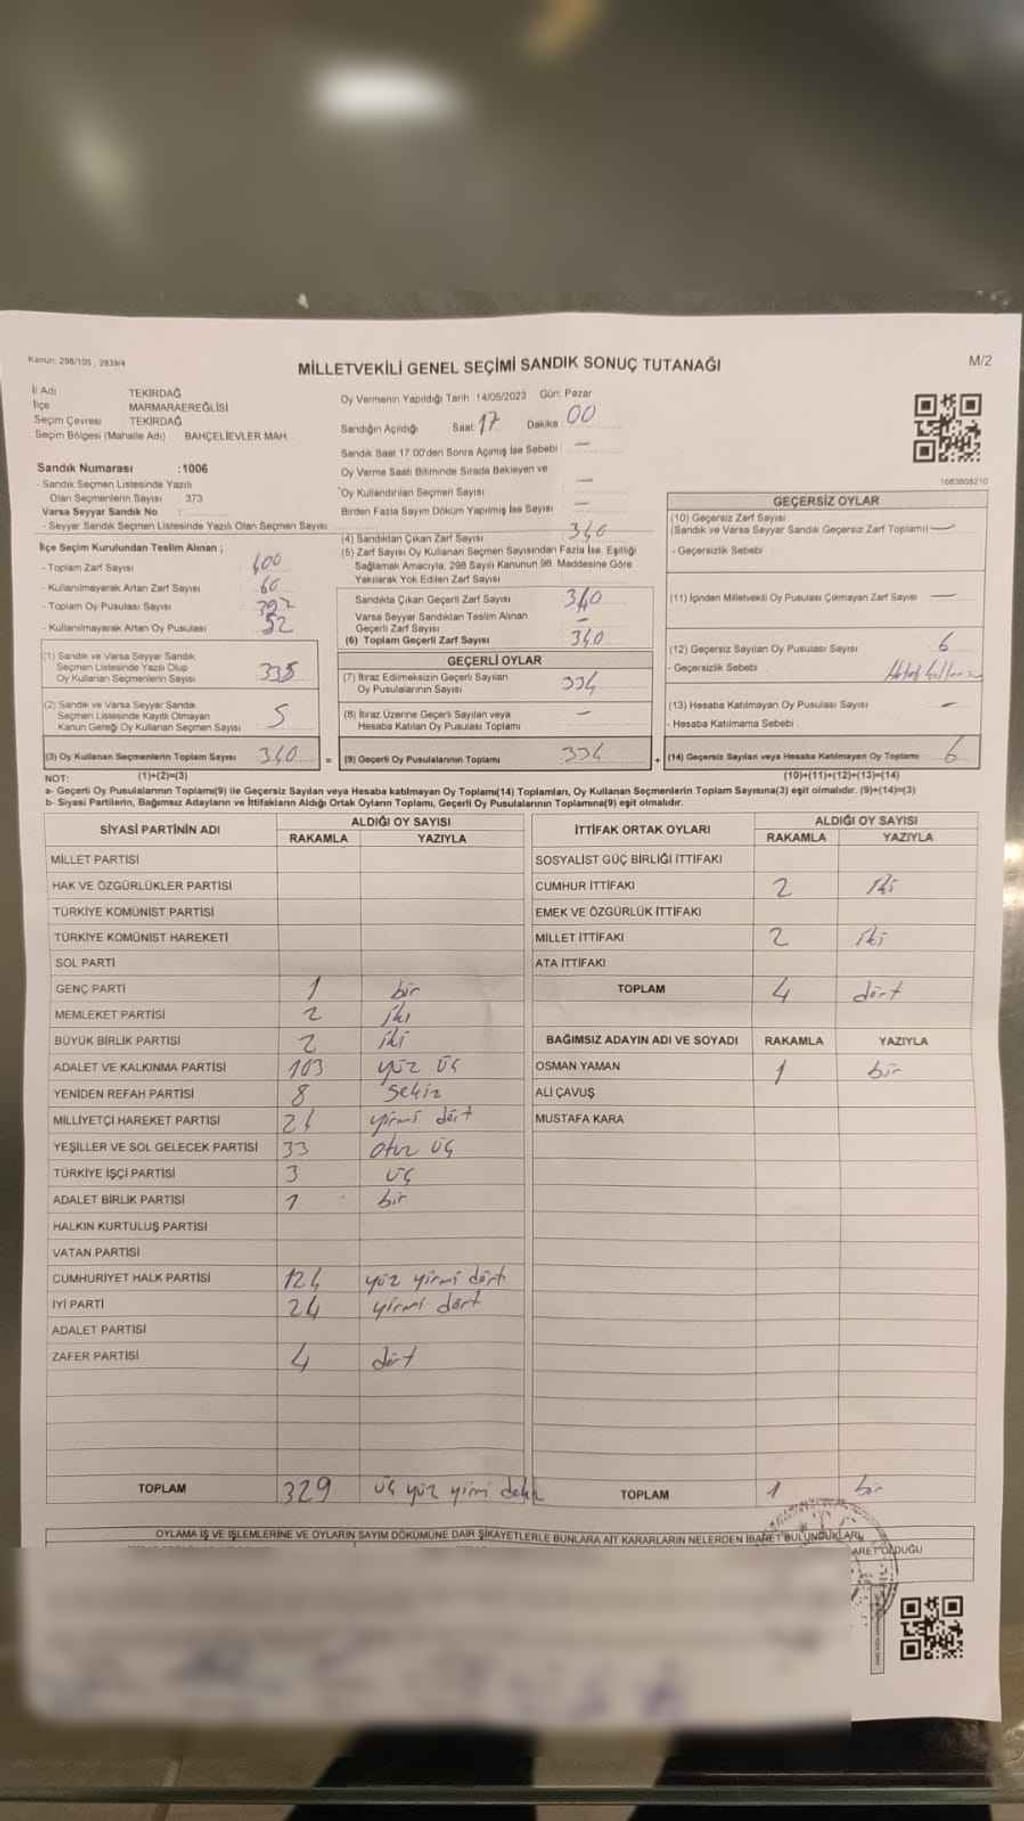 Kanun: 298/105 , 2839/4
MİLLETVEKİLİ GENEL SEÇİMİ SANDIK SONUÇ TUTANAĞI
M/2
İl Adı TEKİRDAĞ
İlçe MARMARAEREĞLİSİ
Seçim Çevresi TEKİRDAĞ
Seçim Bölgesi (Mahalle Adı) BAHÇELİEVLER MAH.
Oy Vermenin Yapıldığı Tarih :14/05/2023 Gün: Pazar
Sandığın Açıldığı Saat: 17 Dakika: 00
Sandık Saat 17:00'den Sonra Açılmış İse Sebebi: —
Oy Verme Saati Bitiminde Sırada Bekleyen ve
Oy Kullandırılan Seçmen Sayısı —
Birden Fazla Sayım Döküm Yapılmış İse Sayısı —
Sandık Numarası :1006
- Sandık Seçmen Listesinde Yazılı
Olan Seçmenlerin Sayısı 373
Varsa Seyyar Sandık No :
- Seyyar Sandık Seçmen Listesinde Yazılı Olan Seçmen Sayısı
İlçe Seçim Kurulundan Teslim Alınan ;
- Toplam Zarf Sayısı 400
- Kullanılmayarak Artan Zarf Sayısı 60
- Toplam Oy Pusulası Sayısı 392
- Kullanılmayarak Artan Oy Pusulası 52
(1) Sandık ve Varsa Seyyar Sandık
Seçmen Listesinde Yazılı Olup
Oy Kullanan Seçmenlerin Sayısı 335
(2) Sandık ve Varsa Seyyar Sandık
Seçmen Listesinde Kayıtlı Olmayan
Kanun Gereği Oy Kullanan Seçmen Sayısı 5
(3) Oy Kullanan Seçmenlerin Toplam Sayısı 340
(4) Sandıktan Çıkan Zarf Sayısı 340
(5) Zarf Sayısı Oy Kullanan Seçmen Sayısından Fazla İse, Eşitliği
Sağlamak Amacıyla, 298 Sayılı Kanunun 98. Maddesine Göre
Yakılarak Yok Edilen Zarf Sayısı
Sandıkta Çıkan Geçerli Zarf Sayısı 340
Varsa Seyyar Sandıktan Teslim Alınan
Geçerli Zarf Sayısı —
(6) Toplam Geçerli Zarf Sayısı 340
GEÇERLİ OYLAR
(7) İtiraz Edilmeksizin Geçerli Sayılan
Oy Pusulalarının Sayısı 334
(8) İtiraz Üzerine Geçerli Sayılan veya
Hesaba Katılan Oy Pusulası Toplamı —
= (9) Geçerli Oy Pusulalarının Toplamı 334 +
1683808210
GEÇERSİZ OYLAR
(10) Geçersiz Zarf Sayısı
(Sandık ve Varsa Seyyar Sandık Geçersiz Zarf Toplamı) —
- Geçersizlik Sebebi
(11) İçinden Milletvekili Oy Pusulası Çıkmayan Zarf Sayısı —
(12) Geçersiz Sayılan Oy Pusulası Sayısı 6
- Geçersizlik Sebebi
(13) Hesaba Katılmayan Oy Pusulası Sayısı —
- Hesaba Katılmama Sebebi
(14) Geçersiz Sayılan veya Hesaba Katılmayan Oy Toplamı 6
NOT: (1)+(2)=(3) (10)+(11)+(12)+(13)=(14)
a- Geçerli Oy Pusulalarının Toplamı(9) ile Geçersiz Sayılan veya Hesaba katılmayan Oy Toplamı(14) Toplamları, Oy Kullanan Seçmenlerin Toplam Sayısına(3) eşit olmalıdır. (9)+(14)=(3)
b- Siyasi Partilerin, Bağımsız Adayların ve İttifakların Aldığı Ortak Oyların Toplamı, Geçerli Oy Pusulalarının Toplamına(9) eşit olmalıdır.
SİYASİ PARTİNİN ADI ALDIĞI OY SAYISI
RAKAMLA YAZIYLA
MİLLET PARTİSİ
HAK VE ÖZGÜRLÜKLER PARTİSİ
TÜRKİYE KOMÜNİST PARTİSİ
TÜRKİYE KOMÜNİST HAREKETİ
SOL PARTİ
GENÇ PARTİ 1 bir
MEMLEKET PARTİSİ 2 iki
BÜYÜK BİRLİK PARTİSİ 2 iki
ADALET VE KALKINMA PARTİSİ 103 yüz üç
YENİDEN REFAH PARTİSİ 8 sekiz
MİLLİYETÇİ HAREKET PARTİSİ 24 yirmi dört
YEŞİLLER VE SOL GELECEK PARTİSİ 33 otuz üç
TÜRKİYE İŞÇİ PARTİSİ 3 üç
ADALET BİRLİK PARTİSİ 1 bir
HALKIN KURTULUŞ PARTİSİ
VATAN PARTİSİ
CUMHURİYET HALK PARTİSİ 124 yüz yirmi dört
İYİ PARTİ 24 yirmi dört
ADALET PARTİSİ
ZAFER PARTİSİ 4 dört
TOPLAM 329 üç yüz yirmi dokuz
İTTİFAK ORTAK OYLARI ALDIĞI OY SAYISI
RAKAMLA YAZIYLA
SOSYALİST GÜÇ BİRLİĞİ İTTİFAKI
CUMHUR İTTİFAKI 2 iki
EMEK VE ÖZGÜRLÜK İTTİFAKI
MİLLET İTTİFAKI 2 iki
ATA İTTİFAKI
TOPLAM 4 dört
BAĞIMSIZ ADAYIN ADI VE SOYADI RAKAMLA YAZIYLA
OSMAN YAMAN 1 bir
ALİ ÇAVUŞ
MUSTAFA KARA
TOPLAM 1 bir
OYLAMA İŞ VE İŞLEMLERİNE VE OYLARIN SAYIM DÖKÜMÜNE DAİR ŞİKAYETLERLE BUNLARA AİT KARARLARIN NELERDEN İBARET BULUNDUKLARI
ARET OLDUĞU